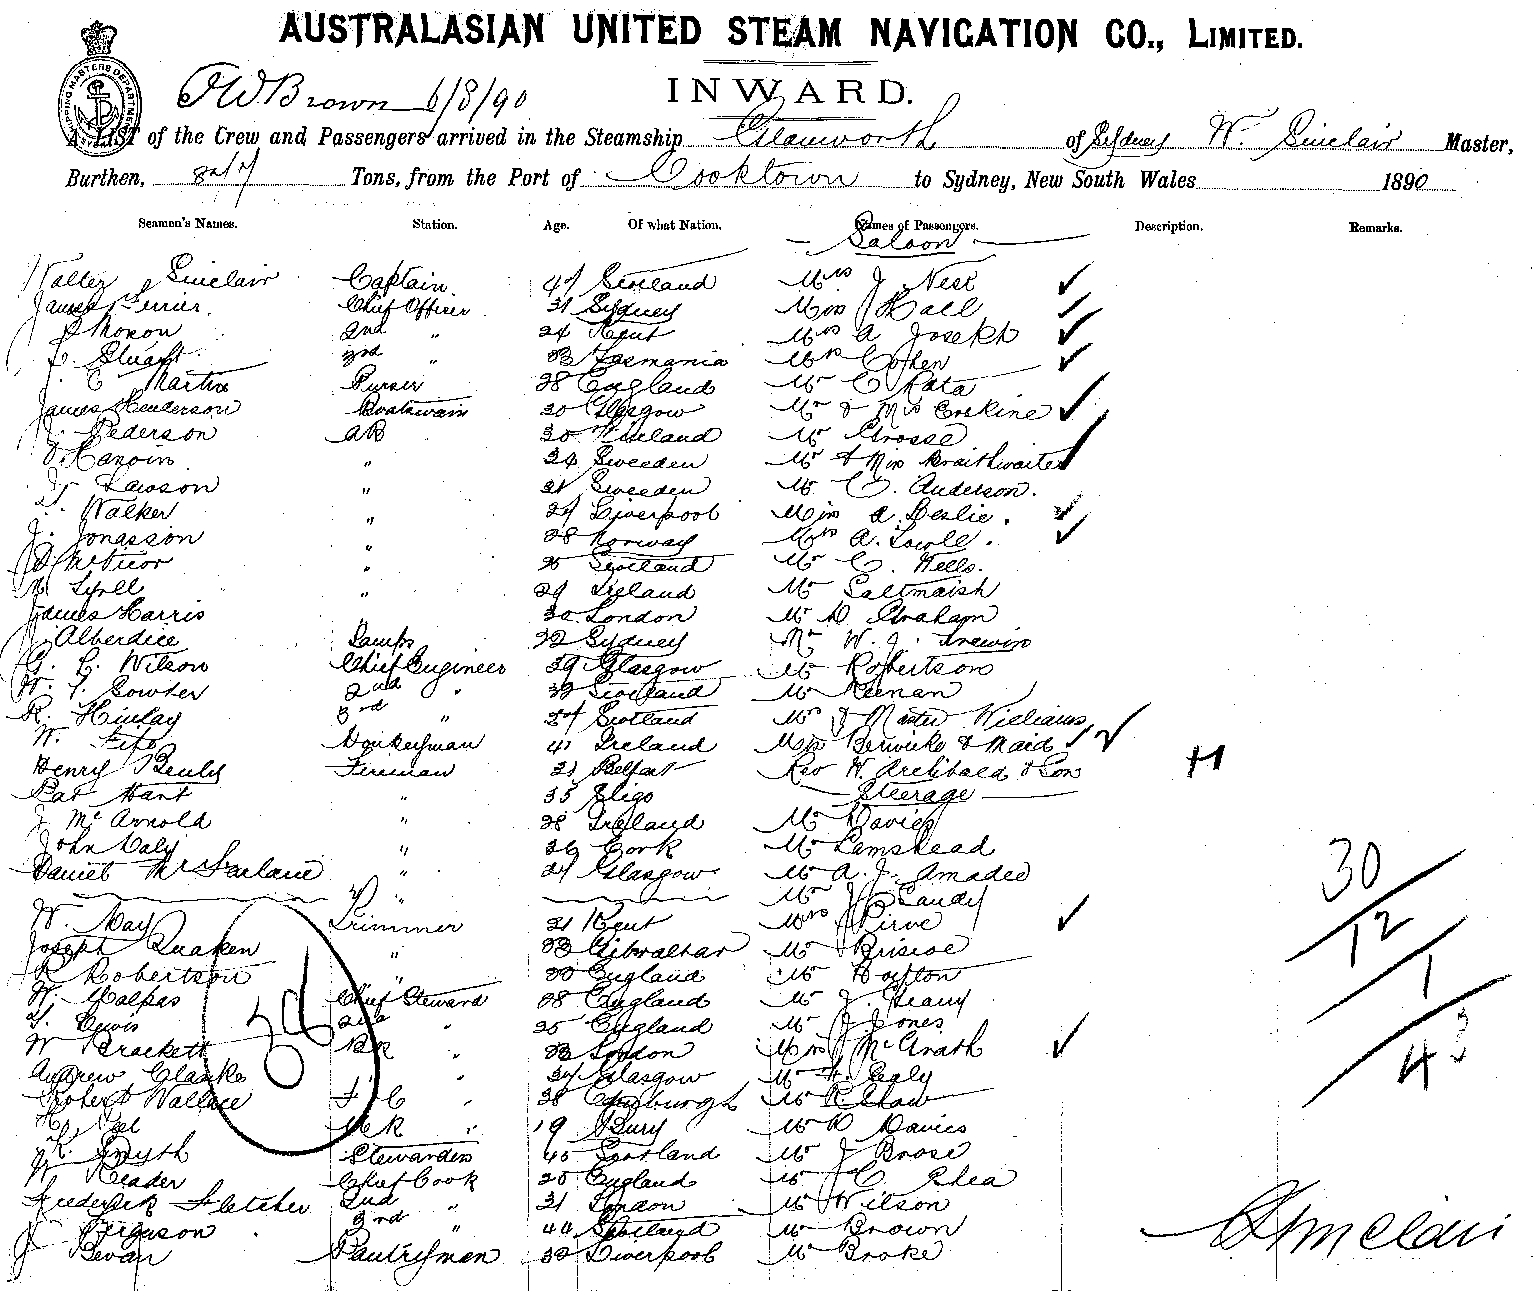 AUSTRALASIAN UNITED STEAM NAVIGATION CO., LIMITED.
INWARD.
F W Brown 6/8/90
A LIST of the Crew and Passengers arrived in the Steamship Glanworth of Sydney W. Sinclair Master,
Burthen, Tons, from the Port of Cooktown to Sydney, New South Wales 1890
Seamen's Names. Station. Age. Of what Nation. Names of Passengers. Description. Remarks.
Saloon
Walter Sinclair Captain 47 Scotland Mrs J. West
James Ferrier Chief Officer 31 Sydney Miss Hall
J Moxon 2nd " 24 Kent Mrs A Joseph
Stuart 3rd " 33 Tasmania Mrs Cohen
J. C Martin Purser 28 England Mr C Rata
James Henderson Boatswain 30 Glasgow Mr & Mrs Erskine
J. Pederson AB 30 Mr Grosse
" 24 Sweeden Mr & Miss Braithwaite
Lawson " 21 Sweeden Mr C. Anderson.
Walker " 24 Liverpool Miss A. Leslie.
J. Jonasson " 28 Norway Mrs A.
" 25 Scotland Mr C. Wells.
Lyell " 29 Ireland Mr Saltmaish
James Harris 30 London Mr D. Graham
Alberdice Lamps 22 Sydney Mr W. J. Trewin
G. L. Wilson Chief Engineer 39 Glasgow Mr Robertson
W. J. Gowther 2nd " 32 Scotland Mr Keenan
R. Finlay 3rd " 27 Scotland Mrs & Master Williams
W. Donkeyman 41 Ireland Miss Berwicke & Maid
Henry Fireman 21 Belfast Rev W. Archibald & Son
Pat Hart " 35 Sligo Steerage
J McArnold " 28 Ireland Mr Davies
John Daly " 36 Cork Mr Lamshead
Daniel McFarlane " 27 Glasgow Mr A. J. Amadee
" Mr J Sandy
W. May Trimmer 21 Kent Mrs Pirve
Joseph Quaken " 33 Gibraltar Mr Briscoe
R Robertson " 20 England Mr Hoylton
W. Malpas Chief Steward 38 England Mr J. Geany
Lewis 2nd " 25 England Mr J Jones
W Brackett " 23 London Miss McGrath
Andrew Clarke " 34 Glasgow Mr Healy
Robert Wallace F C " 38 Edinburgh Mr R. Shaw
" 19 Bury Mr D Davies
K. Smyth Stewardess 45 Scotland Mr J Brose
W Reader Chief Cook 25 England Mr C. Shea
Frederick Fletcher 2nd " 31 London Mr Wilson
J Ferguson 3rd " 44 Scotland Mr Brown
J Bevan Pantryman 32 Liverpool Mr Broke
30
12
1
43
W Sinclair